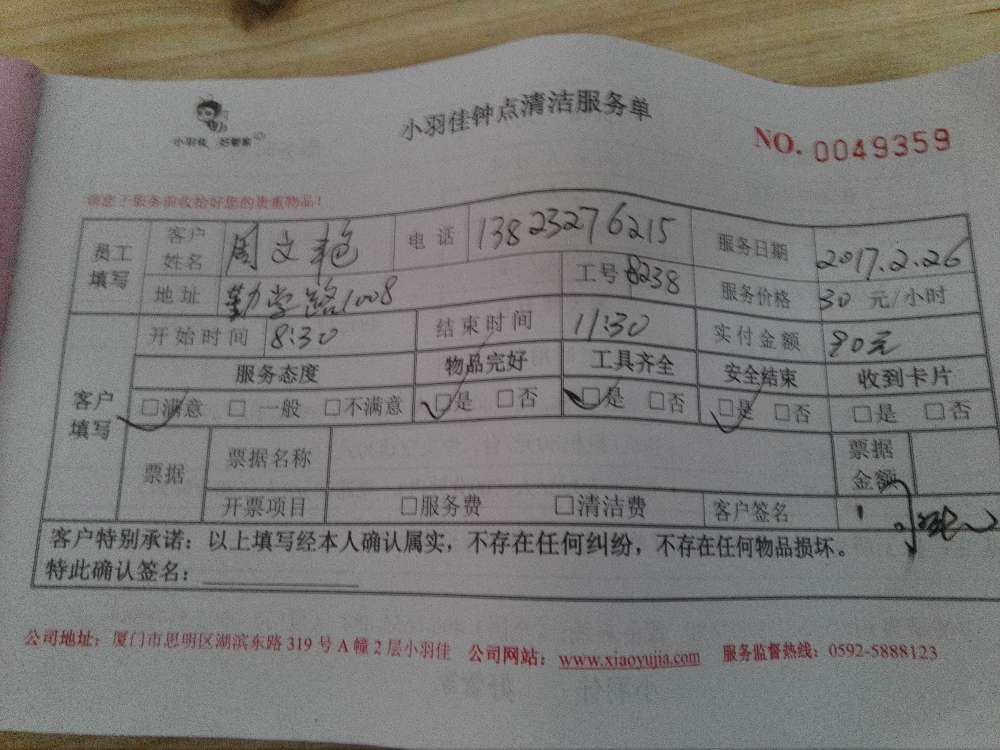 小羽佳 好管家
小羽佳钟点清洁服务单
NO. 0049359
请您于服务前收拾好您的贵重物品！
员工填写 客户姓名 周文艳 电话 13823276215 服务日期 2017.2.26
地址 勤学路1008 工号 8238 服务价格 30 元/小时
客户填写 开始时间 8:30 结束时间 11:30 实付金额 90元
服务态度 物品完好 工具齐全 安全结束 收到卡片
□满意 □一般 □不满意 □是 □否 □是 □否 □是 □否 □是 □否
票据 票据名称 票据金额
开票项目 □服务费 □清洁费 客户签名
客户特别承诺：以上填写经本人确认属实，不存在任何纠纷，不存在任何物品损坏。
特此确认签名：
公司地址：厦门市思明区湖滨东路 319 号 A 幢 2 层小羽佳 公司网站：www.xiaoyujia.com 服务监督热线：0592-5888123